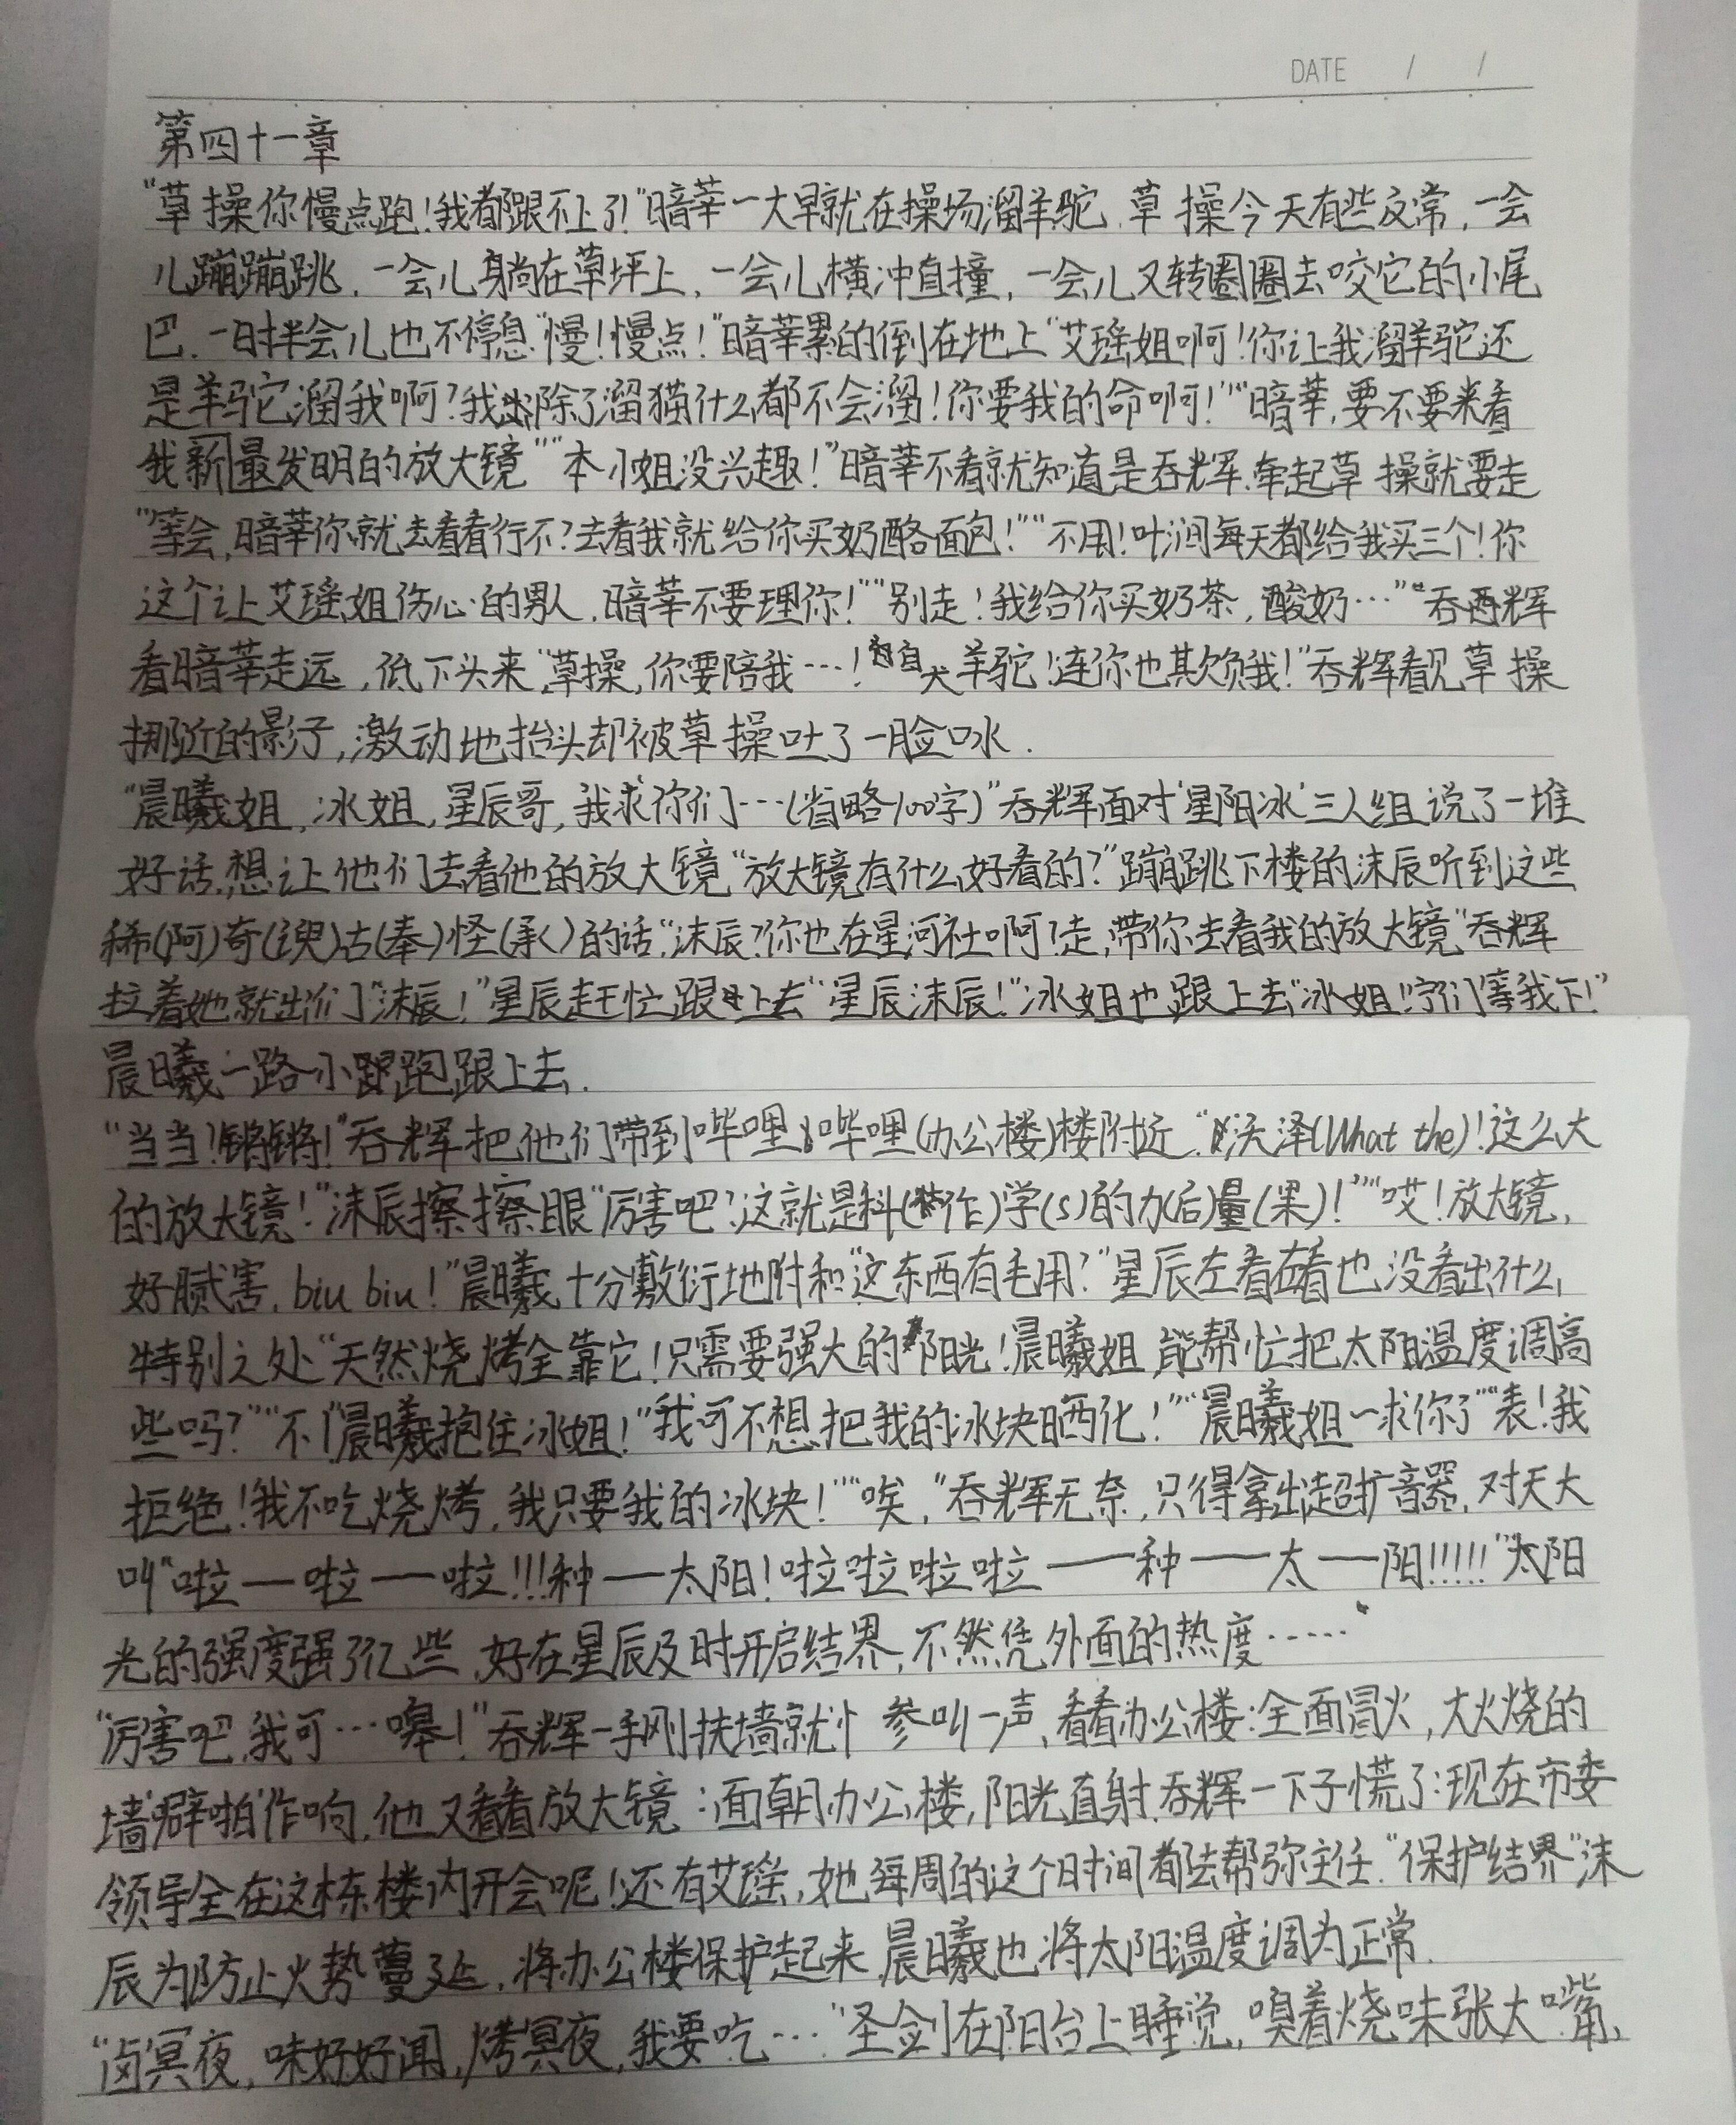 DATE / /
第四十一章
“草操你慢点跑!我都跟不上了!”暗莘一大早就在操场溜羊驼.草操今天有些反常,一会
儿蹦蹦跳,一会儿躺在草坪上,一会儿横冲直撞,一会儿又转圈圈去咬它的小尾
巴.一时半会儿也不停息“慢!慢点!”暗莘累的倒在地上“艾瑶姐啊!你让我溜羊驼还
是羊驼溜我啊?我除了溜猫什么都不会溜!你要我的命啊!”“暗莘,要不要来看
我新最发明的放大镜”“本小姐没兴趣!”暗莘不看就知道是吞辉.牵起草操就要走
“等会,暗莘你就去看看行不?去看我就给你买奶酪面包!”“不用!叶涧每天都给我买三个!你
这个让艾瑶姐伤心的男人,暗莘不要理你!”“别走!我给你买奶茶,酸奶…”吞辉
看暗莘走远,低下头来“草操,你要陪我…!臭羊驼!连你也欺负我!”吞辉看见草操
挪近的影子,激动地抬头却被草操吐了一脸口水.
“晨曦姐,冰姐,星辰哥,我求你们…(省略100字)”吞辉面对‘星阳冰’三人组说了一堆
好话,想让他们去看他的放大镜“放大镜有什么好看的?”蹦跳下楼的沫辰听到这些
稀(阿)奇(谀)古(奉)怪(承)的话“沫辰?你也在星河社啊?走,带你去看我的放大镜”吞辉
拉着她就出门“沫辰!”星辰赶忙跟上去“星辰沫辰!”冰姐也跟上去“冰姐!你们等我下!”
晨曦一路小跑跟上去.
“当当!锵锵!”吞辉把他们带到哔哩哔哩(办公楼)楼附近.“沃泽(What the)!这么大
的放大镜!”沫辰擦擦眼“厉害吧?这就是科(作)学(s)的力(后)量(果)!”“哎!放大镜,
好腻害,biu biu!”晨曦十分敷衍地附和“这东西有毛用?”星辰左看右看也没看出什么
特别之处“天然烧烤全靠它!只需要强大的阳光!晨曦姐,能帮忙把太阳温度调高
些吗?”“不!”晨曦抱住冰姐!”我可不想把我的冰块晒化!”“晨曦姐~求你了”“表!我
拒绝!我不吃烧烤,我只要我的冰块!”“唉,”吞辉无奈,只得拿出超扩音器,对天大
叫“啦—啦—啦!!!种—太阳!啦啦啦啦——种——太—阳!!!!!”太阳
光的强度强了亿些,好在星辰及时开启结界,不然凭外面的热度……
“厉害吧,我可…嗥!”吞辉一手刚扶墙就惨叫一声,看看办公楼:全面冒火,大火烧的
墙‘噼啪’作响,他又看看放大镜:面朝办公楼,阳光直射.吞辉一下子慌了:现在市委
领导全在这栋楼内开会呢!还有艾瑶,她每周的这个时间都去帮弥主任.“保护结界”沫
辰为防止火势蔓延,将办公楼保护起来,晨曦也将太阳温度调为正常.
“卤冥夜,味好好闻,烤冥夜,我要吃…”圣剑在阳台上睡觉,嗅着烧味张大嘴,